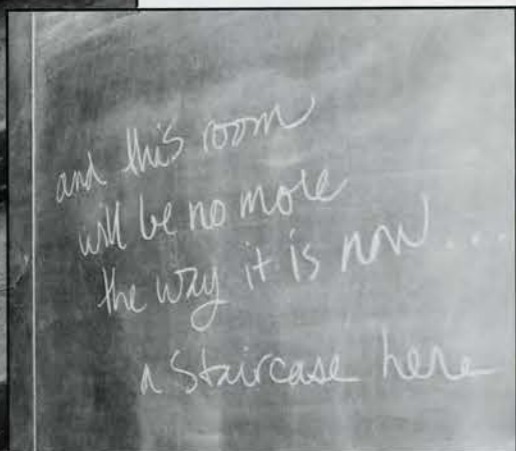 and this room
will be no more
the way it is now...
a staircase here